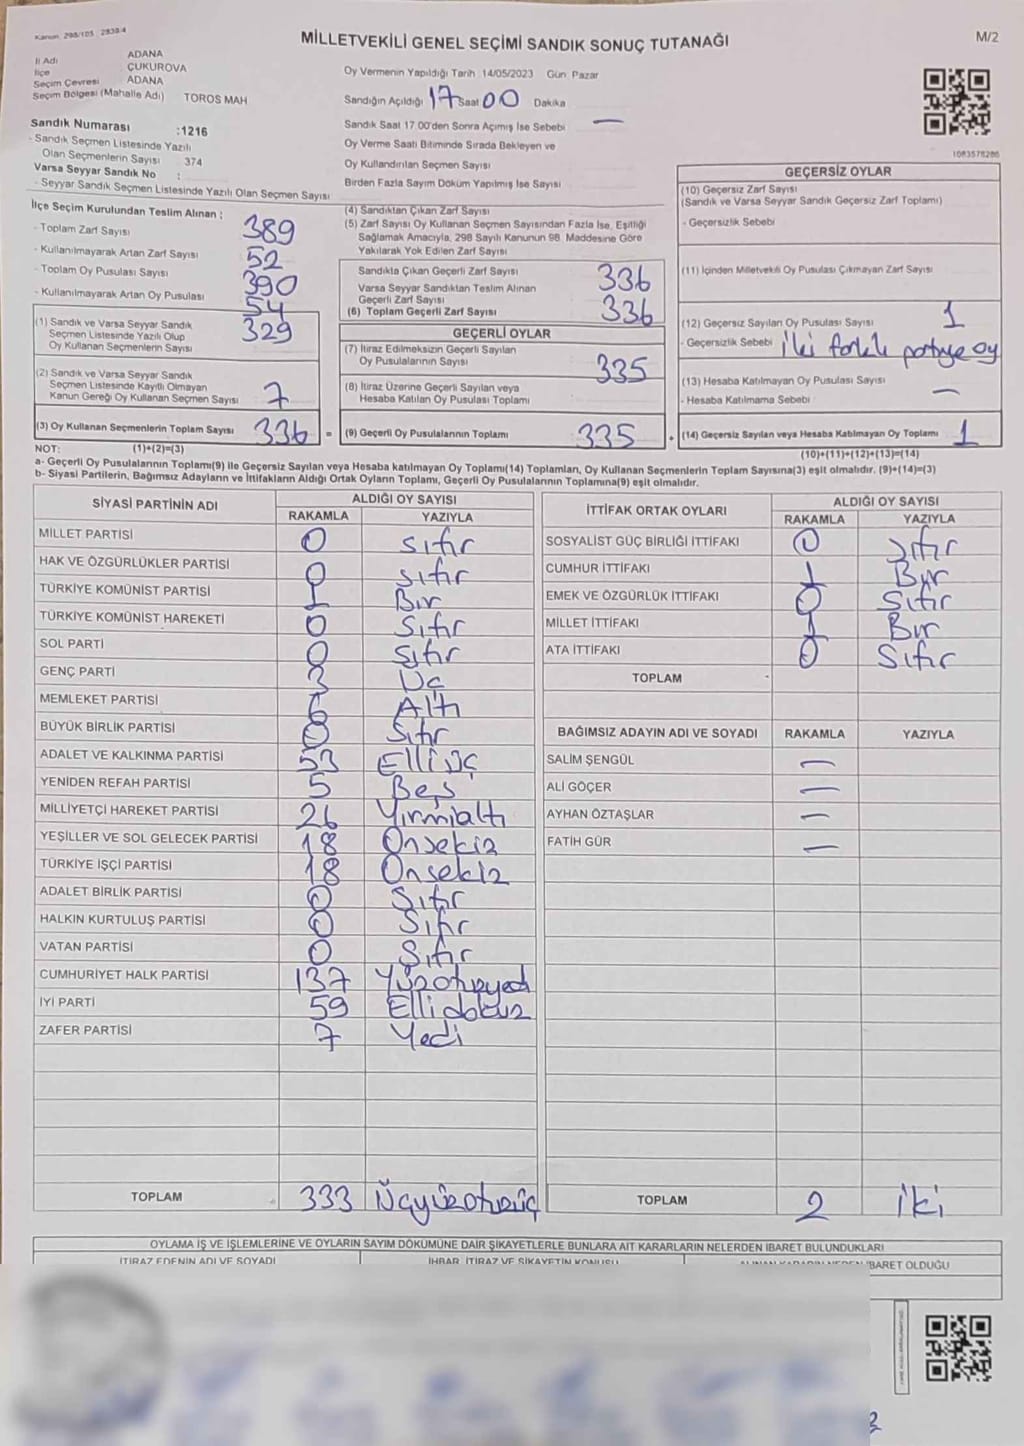 Kanun: 298/105 : 2839/4
MİLLETVEKİLİ GENEL SEÇİMİ SANDIK SONUÇ TUTANAĞI
M/2
İl Adı ADANA
İlçe ÇUKUROVA
Seçim Çevresi ADANA
Seçim Bölgesi (Mahalle Adı) TOROS MAH
Sandık Numarası :1216
- Sandık Seçmen Listesinde Yazılı
Olan Seçmenlerin Sayısı 374
Varsa Seyyar Sandık No :
- Seyyar Sandık Seçmen Listesinde Yazılı Olan Seçmen Sayısı
Oy Vermenin Yapıldığı Tarih 14/05/2023 Gün: Pazar
Sandığın Açıldığı 17 Saat 00 Dakika
Sandık Saat 17.00'den Sonra Açımış İse Sebebi —
Oy Verme Saati Bitiminde Sırada Bekleyen ve
Oy Kullandırılan Seçmen Sayısı
Birden Fazla Sayım Döküm Yapılmış İse Sayısı
1083578286
İlçe Seçim Kurulundan Teslim Alınan ;
- Toplam Zarf Sayısı 389
- Kullanılmayarak Artan Zarf Sayısı 52
- Toplam Oy Pusulası Sayısı 390
- Kullanılmayarak Artan Oy Pusulası 54
(1) Sandık ve Varsa Seyyar Sandık
Seçmen Listesinde Yazılı Olup
Oy Kullanan Seçmenlerin Sayısı 329
(2) Sandık ve Varsa Seyyar Sandık
Seçmen Listesinde Kayıtlı Olmayan
Kanun Gereği Oy Kullanan Seçmen Sayısı 7
(3) Oy Kullanan Seçmenlerin Toplam Sayısı 336 =
(4) Sandıktan Çıkan Zarf Sayısı
(5) Zarf Sayısı Oy Kullanan Seçmen Sayısından Fazla İse, Eşitliği
Sağlamak Amacıyla, 298 Sayılı Kanunun 98. Maddesine Göre
Yakılarak Yok Edilen Zarf Sayısı
Sandıkta Çıkan Geçerli Zarf Sayısı 336
Varsa Seyyar Sandıktan Teslim Alınan
Geçerli Zarf Sayısı
(6) Toplam Geçerli Zarf Sayısı 336
GEÇERLİ OYLAR
(7) İtiraz Edilmeksizin Geçerli Sayılan
Oy Pusulasının Sayısı 335
(8) İtiraz Üzerine Geçerli Sayılan veya
Hesaba Katılan Oy Pusulası Toplamı
(9) Geçerli Oy Pusulalarının Toplamı 335 +
GEÇERSİZ OYLAR
(10) Geçersiz Zarf Sayısı
(Sandık ve Varsa Seyyar Sandık Geçersiz Zarf Toplamı)
- Geçersizlik Sebebi
(11) İçinden Milletvekili Oy Pusulası Çıkmayan Zarf Sayısı
(12) Geçersiz Sayılan Oy Pusulası Sayısı 1
- Geçersizlik Sebebi İki farklı partiye oy
(13) Hesaba Katılmayan Oy Pusulası Sayısı —
- Hesaba Katılmama Sebebi
(14) Geçersiz Sayılan veya Hesaba Katılmayan Oy Toplamı 1
NOT: (1)+(2)=(3)
(10)+(11)+(12)+(13)=(14)
a- Geçerli Oy Pusulalarının Toplamı(9) ile Geçersiz Sayılan veya Hesaba katılmayan Oy Toplamı(14) Toplamları, Oy Kullanan Seçmenlerin Toplam Sayısına(3) eşit olmalıdır. (9)+(14)=(3)
b- Siyasi Partilerin, Bağımsız Adayların ve İttifakların Aldığı Ortak Oyların Toplamı, Geçerli Oy Pusulalarının Toplamına(9) eşit olmalıdır.
SİYASİ PARTİNİN ADI ALDIĞI OY SAYISI
RAKAMLA YAZIYLA
MİLLET PARTİSİ 0 Sıfır
HAK VE ÖZGÜRLÜKLER PARTİSİ 0 Sıfır
TÜRKİYE KOMÜNİST PARTİSİ 1 Bir
TÜRKİYE KOMÜNİST HAREKETİ 0 Sıfır
SOL PARTİ 0 Sıfır
GENÇ PARTİ 3 Üç
MEMLEKET PARTİSİ 6 Altı
BÜYÜK BİRLİK PARTİSİ 0 Sıfır
ADALET VE KALKINMA PARTİSİ 53 Elli üç
YENİDEN REFAH PARTİSİ 5 Beş
MİLLİYETÇİ HAREKET PARTİSİ 26 Yirmialtı
YEŞİLLER VE SOL GELECEK PARTİSİ 18 Onsekiz
TÜRKİYE İŞÇİ PARTİSİ 18 Onsekiz
ADALET BİRLİK PARTİSİ 0 Sıfır
HALKIN KURTULUŞ PARTİSİ 0 Sıfır
VATAN PARTİSİ 0 Sıfır
CUMHURİYET HALK PARTİSİ 137 Yüzotuzyedi
İYİ PARTİ 59 Elli dokuz
ZAFER PARTİSİ 7 Yedi
TOPLAM 333 Üçyüzotuzüç
İTTİFAK ORTAK OYLARI ALDIĞI OY SAYISI
RAKAMLA YAZIYLA
SOSYALİST GÜÇ BİRLİĞİ İTTİFAKI 0 Sıfır
CUMHUR İTTİFAKI 1 Bir
EMEK VE ÖZGÜRLÜK İTTİFAKI 0 Sıfır
MİLLET İTTİFAKI 1 Bir
ATA İTTİFAKI 0 Sıfır
TOPLAM
BAĞIMSIZ ADAYIN ADI VE SOYADI RAKAMLA YAZIYLA
SALİM ŞENGÜL —
ALİ GÖÇER —
AYHAN ÖZTAŞLAR —
FATİH GÜR —
TOPLAM 2 İki
OYLAMA İŞ VE İŞLEMLERİNE VE OYLARIN SAYIM DÖKÜMÜNE DAİR ŞİKAYETLERLE BUNLARA AİT KARARLARIN NELERDEN İBARET BULUNDUKLARI
İTİRAZ EDENİN ADI VE SOYADI İHBAR, İTİRAZ VE ŞİKAYETİN KONUSU İBARET OLDUĞU